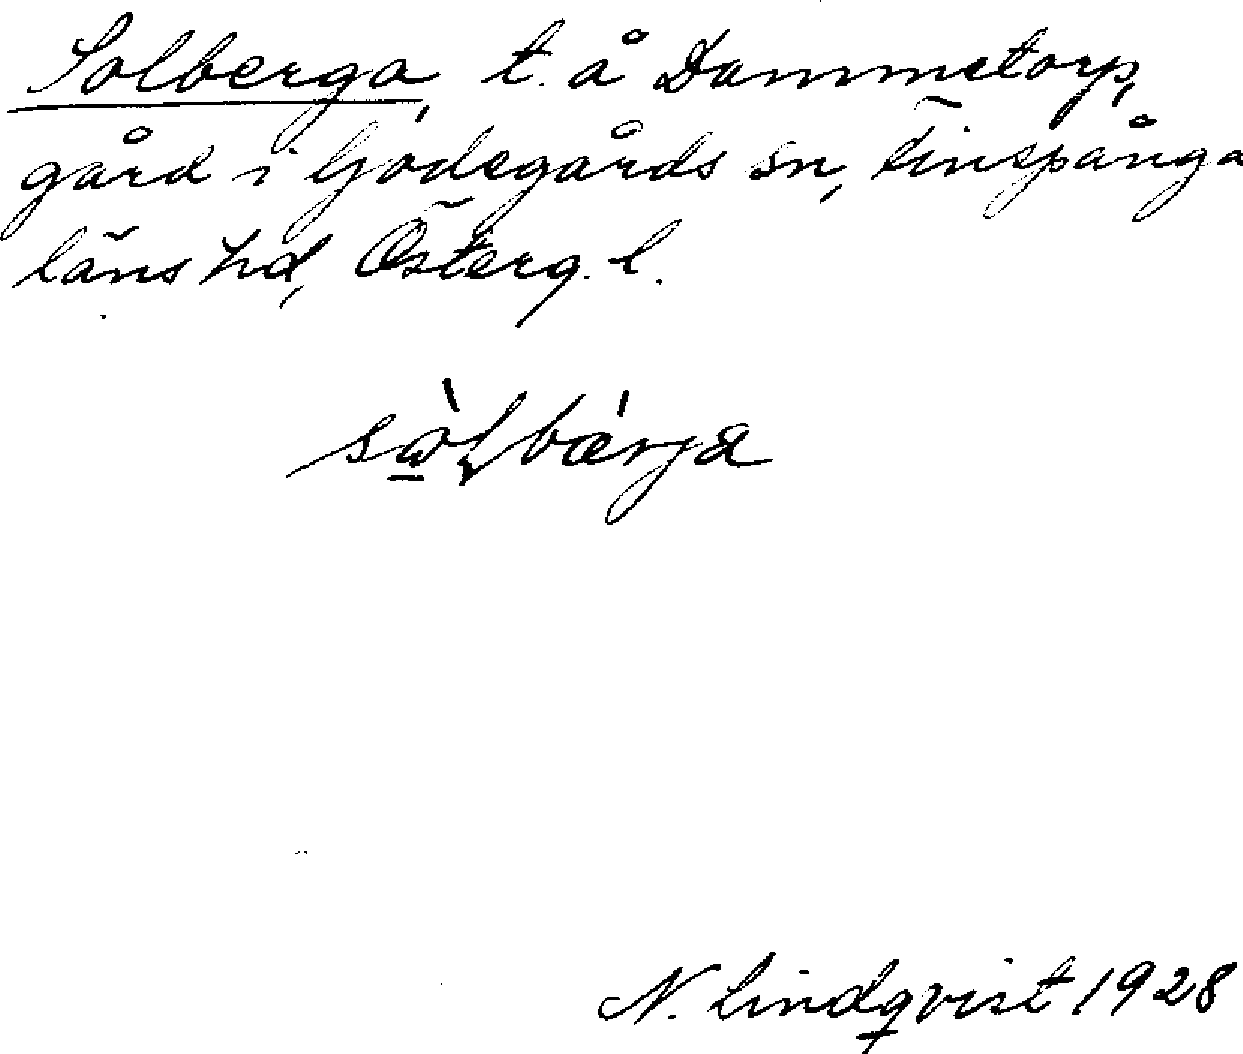 Solberga, t. å Dammetorp,
gård i Godegårds sn, Finspånga
läns hd, Österg. l.
sὼlbærja
N. Lindqvist 1928